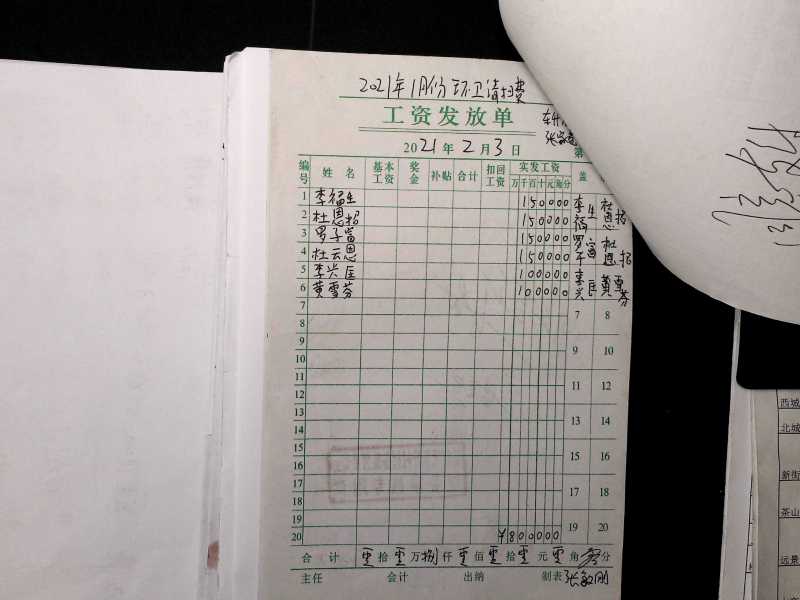 2021年1月份环卫清扫费
工资发放单
2021年2月3日
第
编号 姓名 基本工资 奖金 补贴 合计 扣回工资 实发工资 盖
万千百十元角分
1 李福生 150000
2 杜恩招 150000 李福生 杜恩招
3 罗子富 150000
4 杜云恩 150000
5 李兴匡 100000
6 黄雪芬 100000 李兴匡 黄雪芬
7 7 8
8
9 9 10
10
11 11 12
12
13 13 14
14
15 15 16
16
17 17 18
18
19 19 20
20 ¥800000
合计 零拾零万捌仟零佰零拾零元零角零分
主任 会计 出纳 制表
西城
北城
新街
茶山
远景